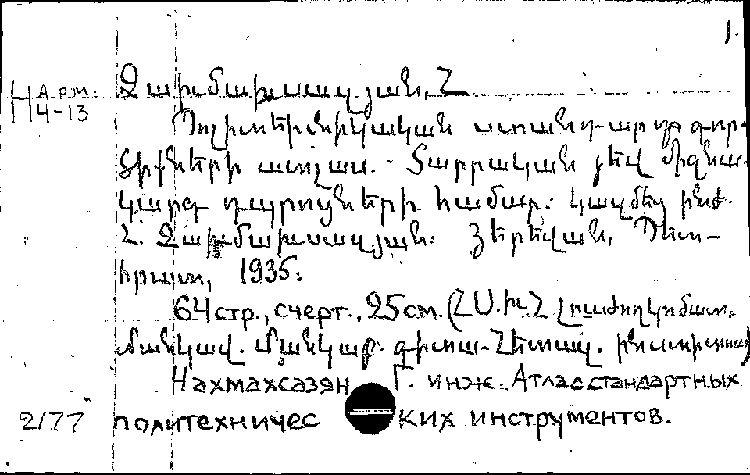 1.
Арм. Ջախմախսազյան, Հ
4-13
Պոլիտեխնիկական ստանդարտ գոր-
ծիքների ատլաս. - Տարրական յեվ միջնա-
կարգ դպրոցների համար. կազմեց ինժ.
Հ. Ջախմախսազյան. Յերեվան, Պետ-
հրատ, 1935.
64 стр., счерт., 25 см. (ՀՍԽՀ Լուսժողկոմատ.
Մանկավ. մանկաբ. գիտա-հետազ. ինստիտուտ)
Чахмахсазян Г. инж. Атлас стандартных
2/77 политехничес ких инструментов.